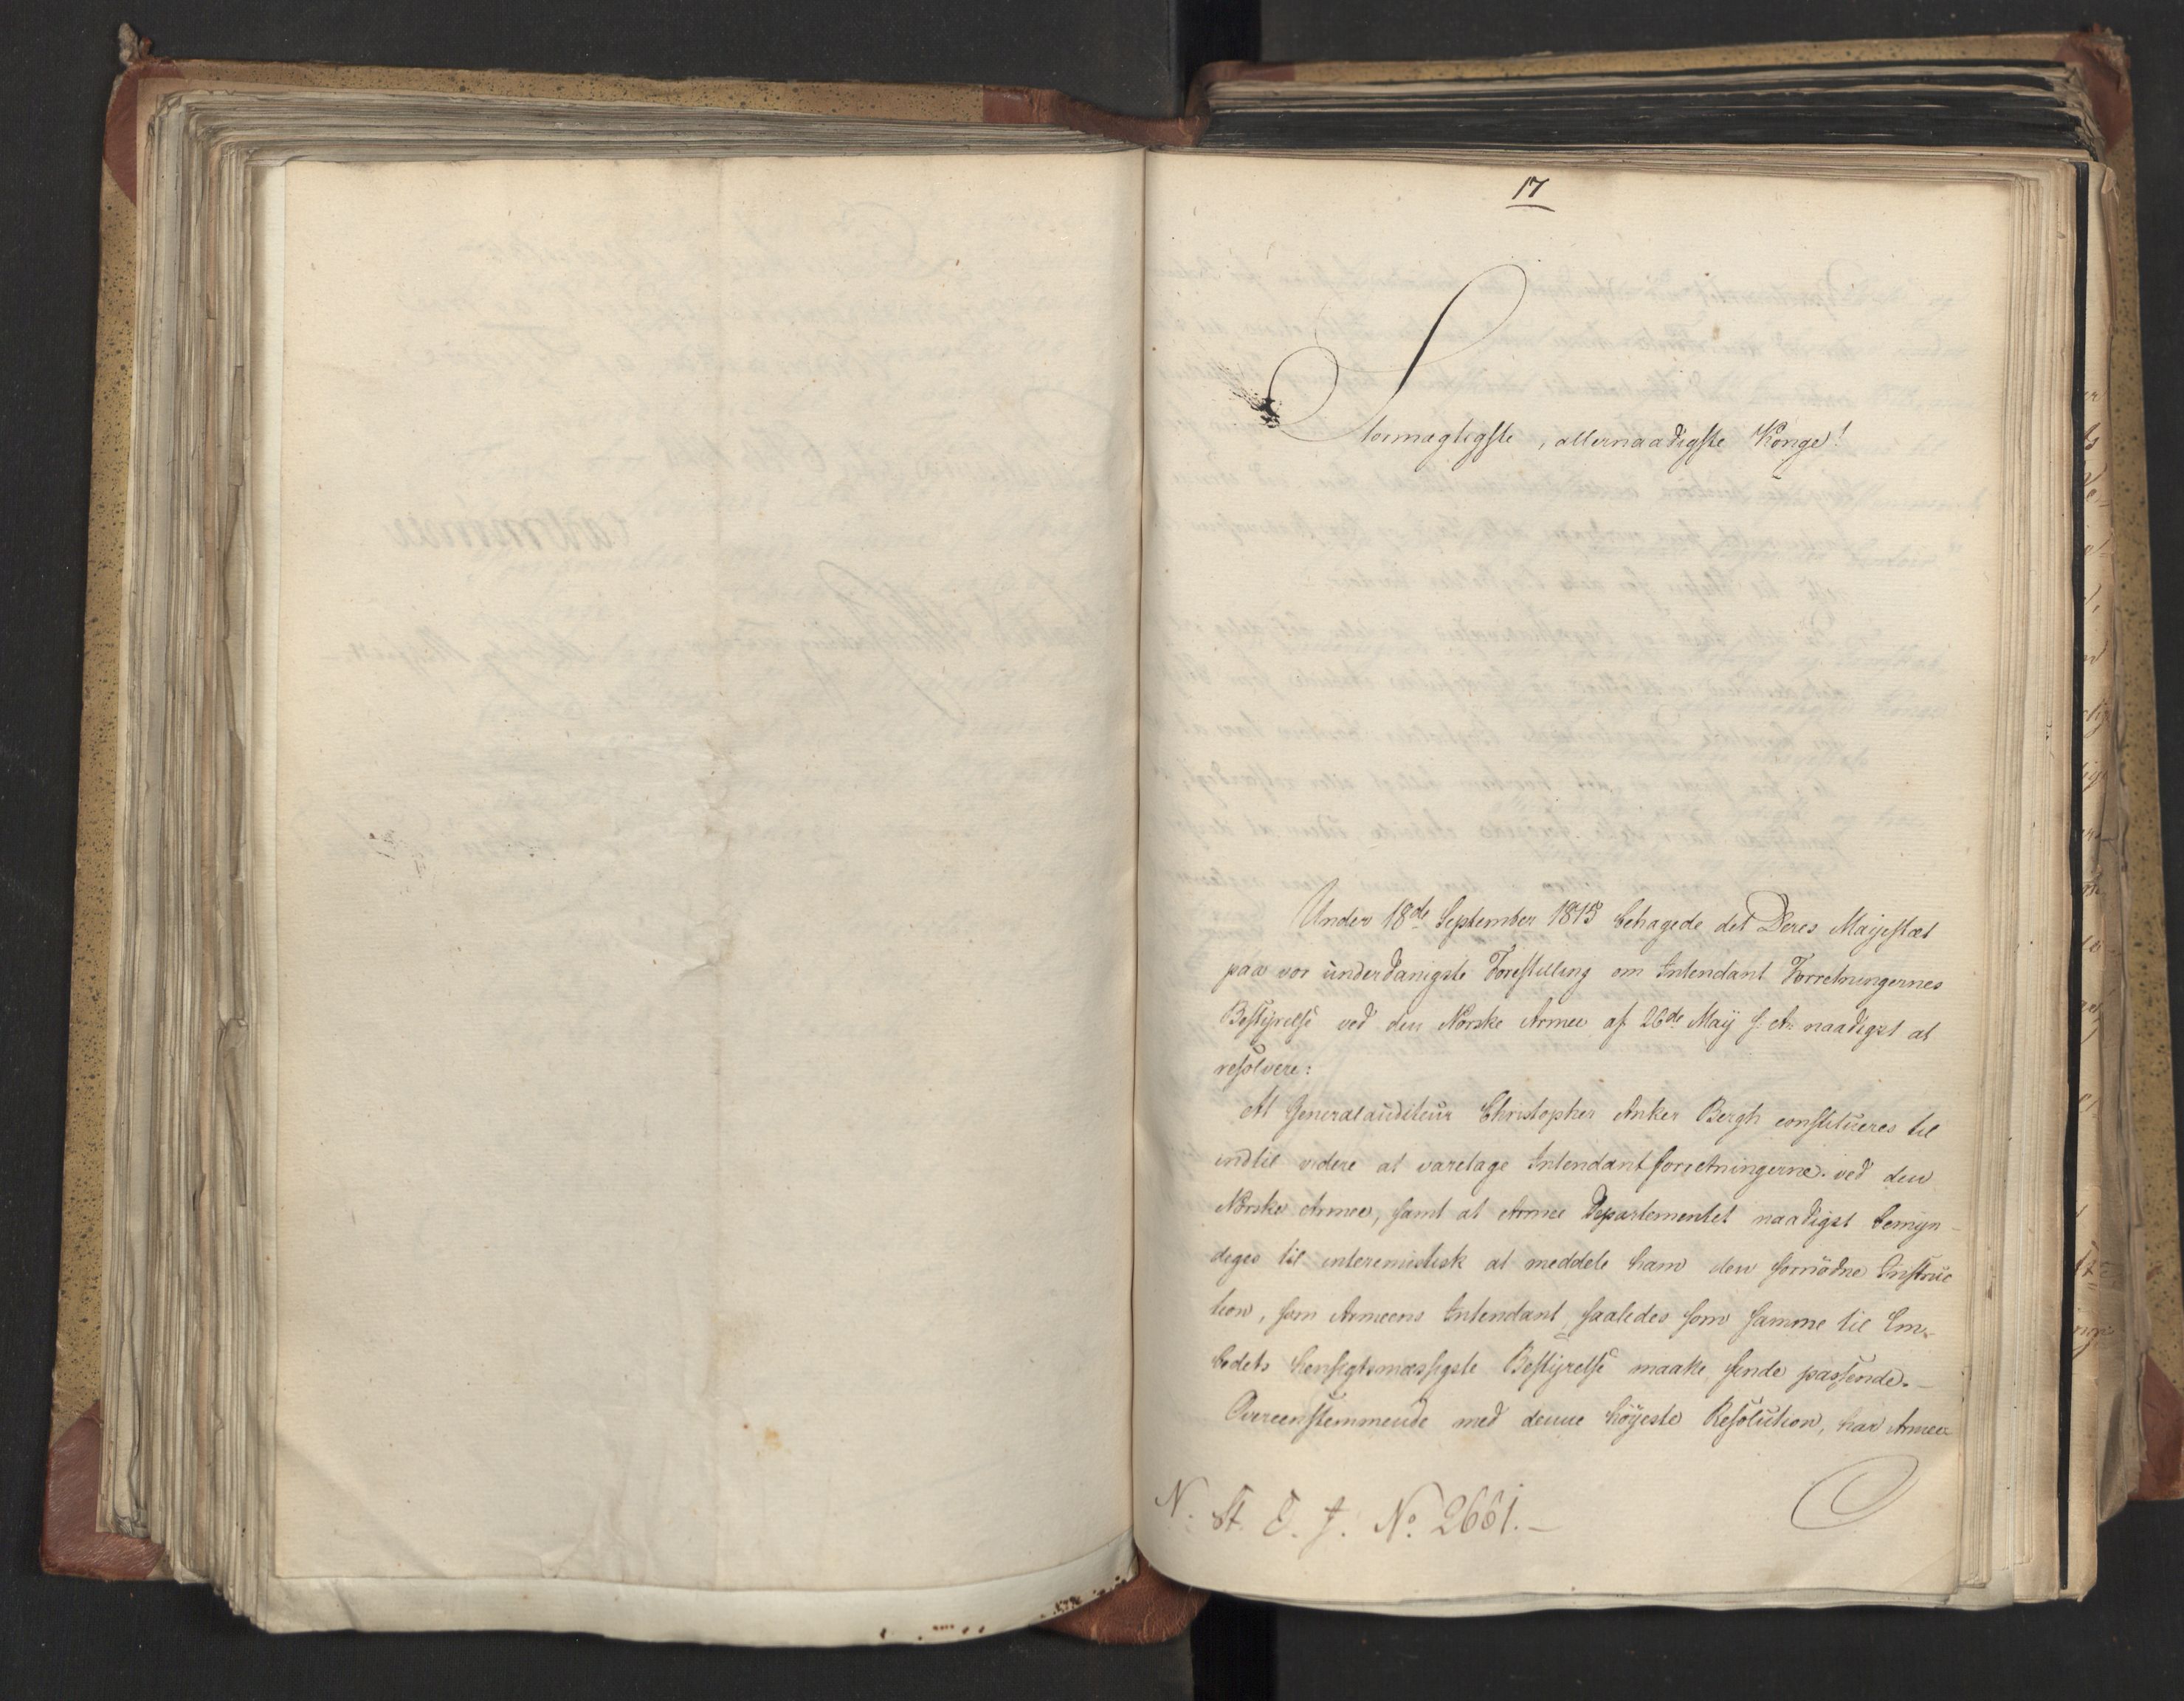 17
Stormægtigste, allernaadigste Konge!
Under 18de September 1815 behagede det Deres Majestæt
paa vor underdanigste Forestilling om Intendant Forretningernes
Bestyrelse ved den Norske Armee af 26de May s: A: naadigst at
resolvere:
At Generalauditeur Christopher Anker Bergh constitueres til
indtil videre at varetage Intendantforretningerne ved den
Norske Armee, samt at Armee Departementet naadigst bemyn-
diges til interimistisk at meddele ham den fornödne Instruc
tion, som Armeens Intendant, saaledes som samme til Em-
bedets hensigtsmæssigste Bestyrelse maatte finde passende.-
Overeenstemmende med denne höyeste Resolution, har Armee
N. St. E. J. No. 2661.-